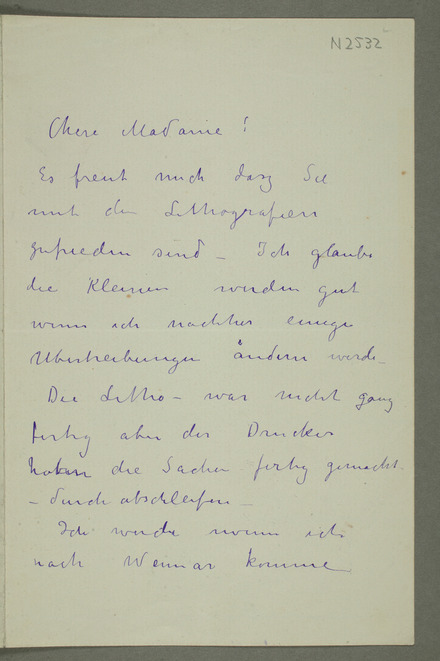 N2532
Chere Madame!
Es freut mich dasz Sie
mit den Lithografien
zufrieden sind – Ich glaube
die Kleinen werden gut
wenn ich nachher einige
Übertreibungen ändern werde –
Die Litho – war nicht ganz
fertig aber der Drucker
die Sachen fertig gemacht
– durch abschleifen –
Ich werde wenn ich
nach Weimar komme